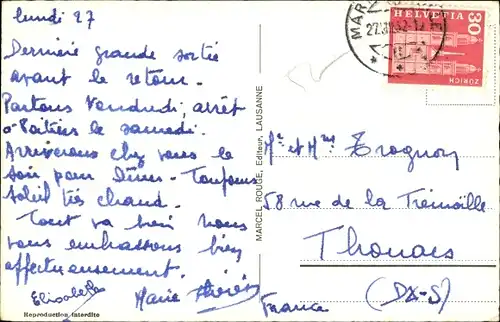 lundi 27
Dernière grande sortie
avant le retour.
Partons Vendredi, arrêt
à Poitiers le samedi.
Arriverons chez vous le
soir pour Dîner - Toujours
soleil très chaud.
Tout va bien nous
vous embrassons bien
affectueusement.
Elisabeth
Marie
Reproduction interdite
MARCEL ROUGE, Editeur, LAUSANNE
HELVETIA
30
ZÜRICH
Mr et Mme Trognon
58 rue de la Trémoïlle
Thouars
(DX-S)
France